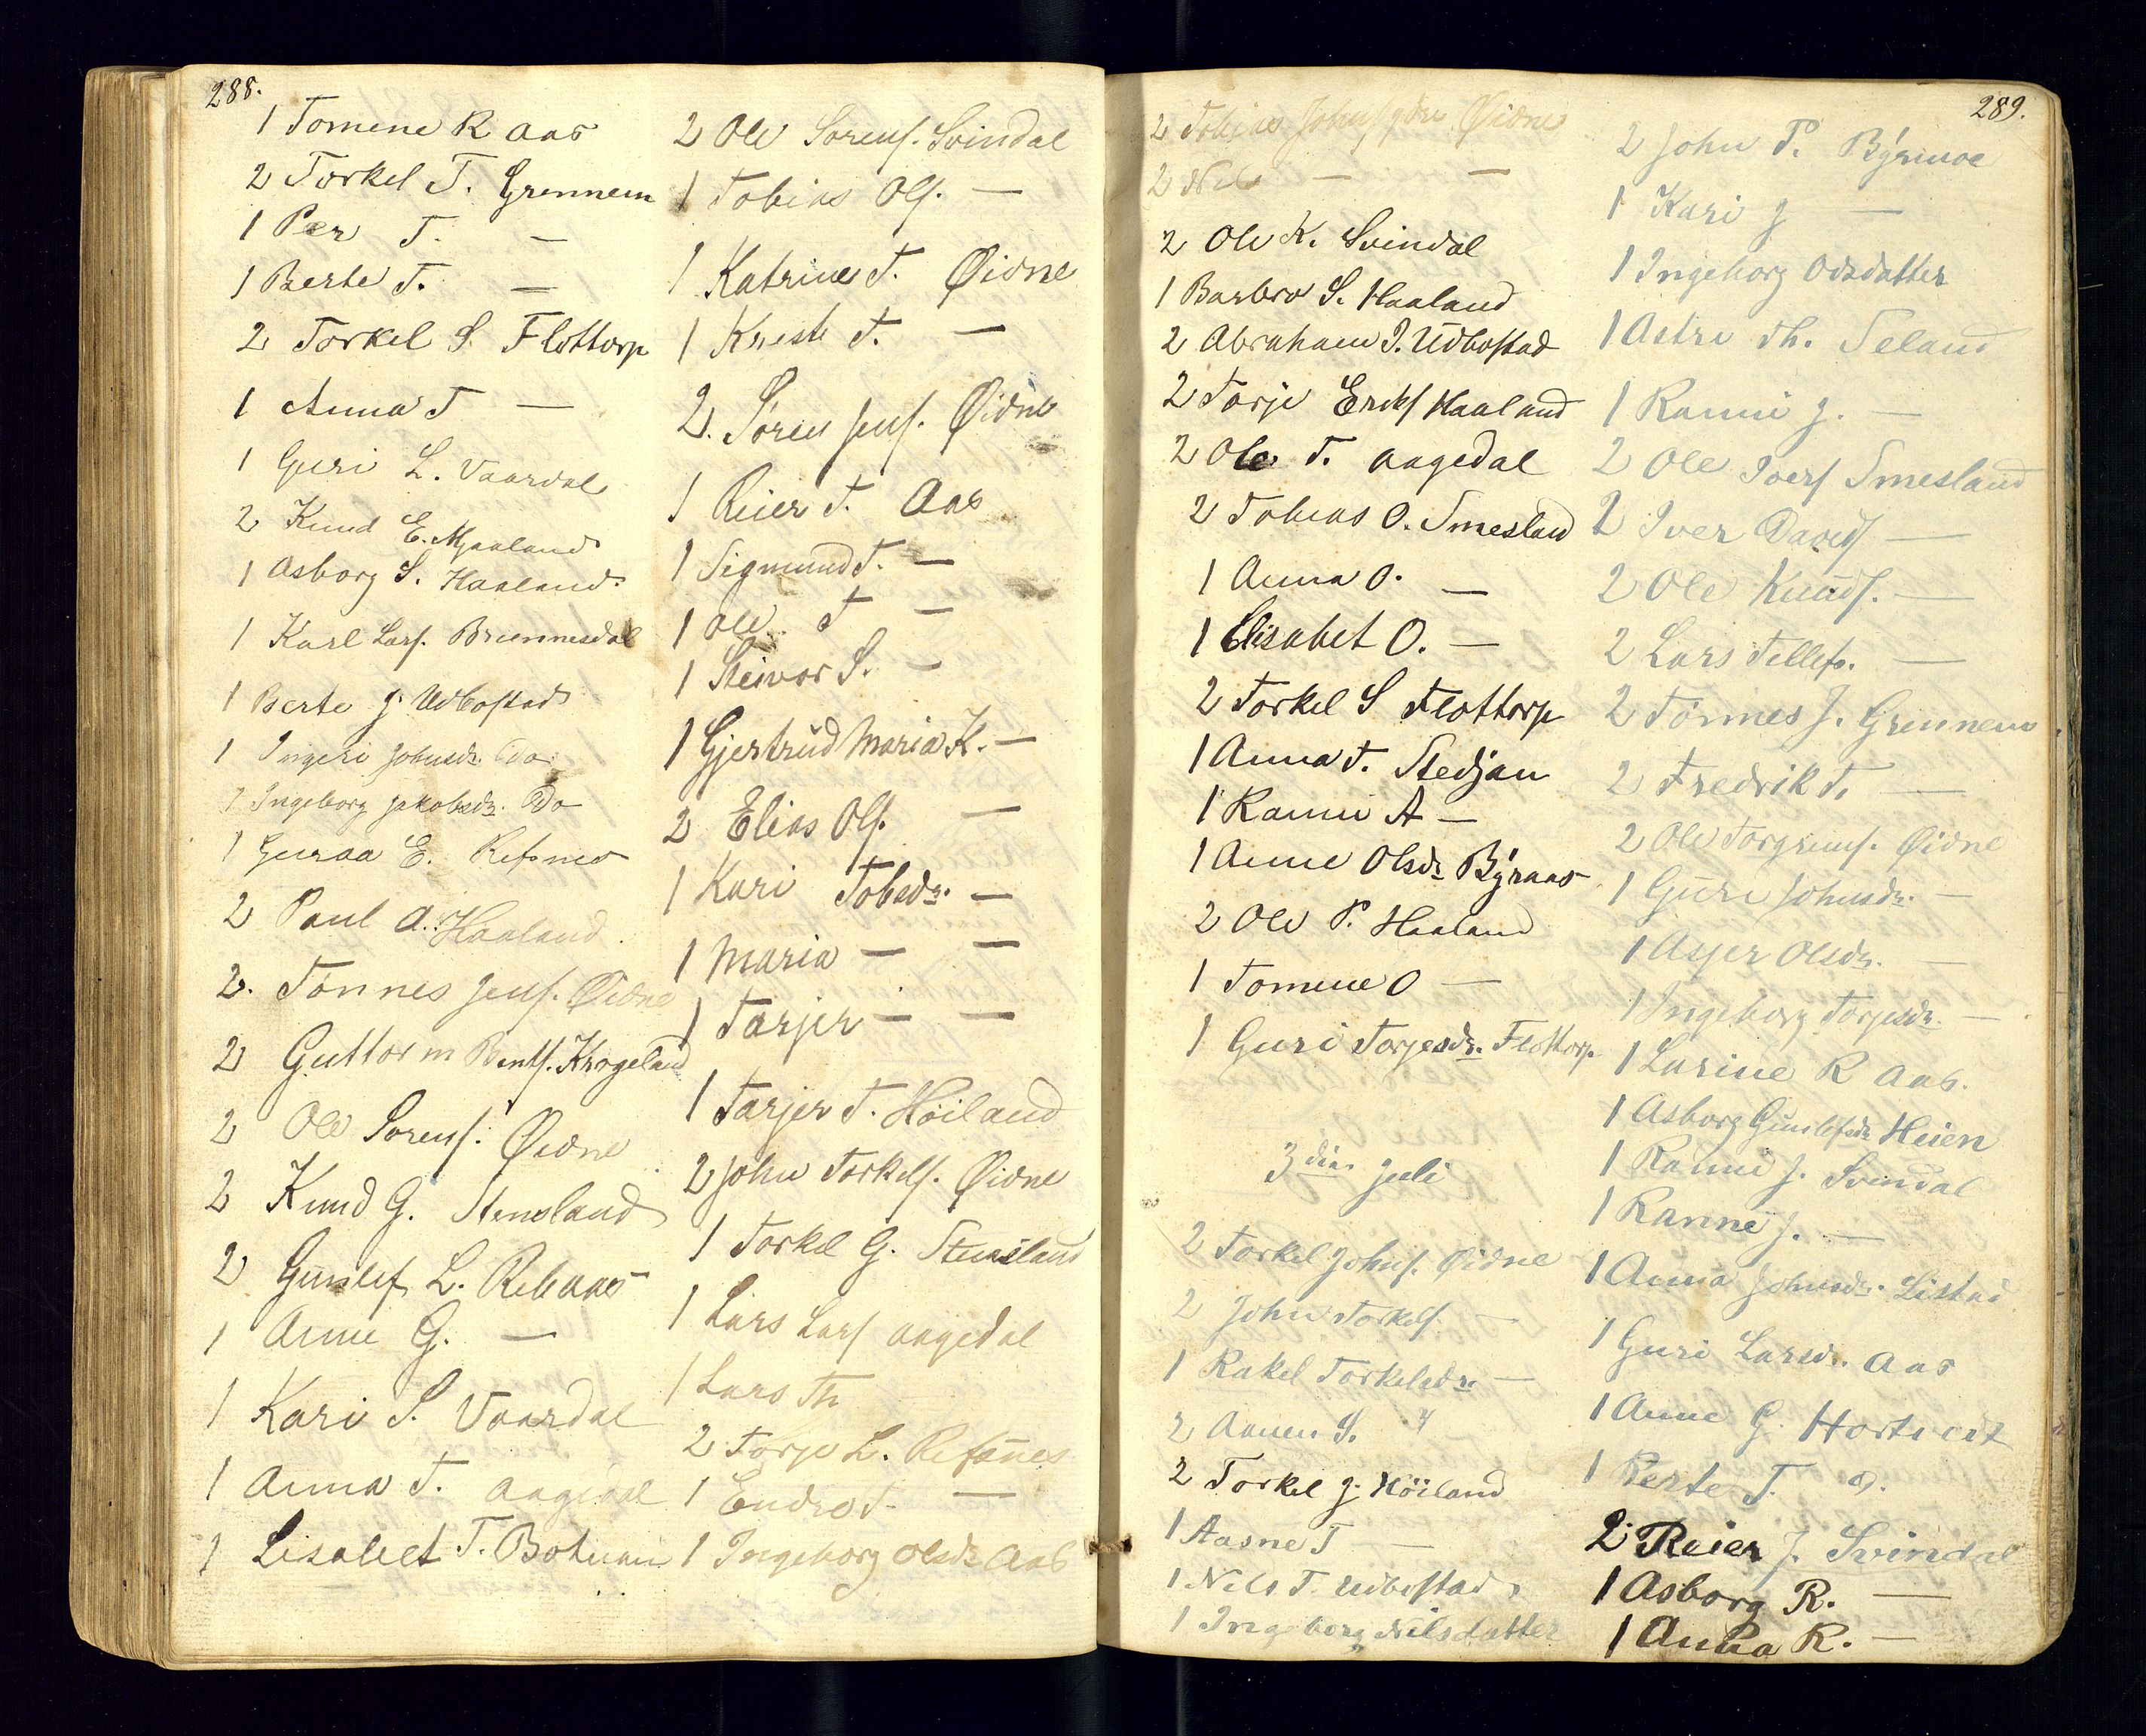 288.
1 Tomene R Aas
2 Torkel T. Grennem
1 Per T. —
1 Berte T. —
2 Torkel S. Flottorp
1 Anna T —
1 Guri L. Vaardal
2 Knud E. Mjaaland
1 Asborg S. Haaland
1 Karl Lars. Brunnesdal
1 Berte J Udbostad
1 Ingeri Johnsdr. Do
1 Ingeborg Jakobsdr. Do
1 Guroa E. Refsnes
2 Paul A. Haaland
2. Tønnes Jens. Øidne
2 Guttorm Bents. Krogeland
2 Ole Sørens. Øidne
2 Knud G. Stensland
2 Gunlef L. Rebaas
1 Anne G. —
1 Kari S. Vaardal
1 Anna T. Aagedal
1 Lisabet T. Botnan
2 Ole Sørens. Svindal
1 Tobias Ols. —
1 Katrine T. Øidne
1 Krest T. —
2. Søren Jens. Øidne
1 Reier T. Aas
1 Sigmund T. —
1 Ole T —
1 Steinvor S. —
1 Gjertrud Maria K. —
2 Elias Ols. —
1 Kari Tobsdr. —
1 Maria — —
1 Tarjer — —
1 Tarjer T. Høiland
2 John Torkels. Øidne
1 Torkel G. Stensland
1 Lars Lars Aagedal
1 Lars Th
2 Torje L. Refsnes
1 Endre T. —
1 Ingeborg Olsdr Aas
289.
2 Tobias Johns Øidne
2 Nils — —
2 Ole K. Svindal
1 Barbro S. Haaland
2 Abraham J. Udbostad
2 Torje Eriks Haaland
2 Ole T. Aagedal
2 Tobias O. Smesland
1 Anna O. —
1 Elisabet O. —
2 Torkel S Flottorp
1 Anna T. Stedjan
1 Ranni A —
1 Anne Olsdr Byraas
2 Ole P. Haaland
1 Tomine O —
1 Guri Torjesdr. Flottorp
3die Juli
2 Torkel Johns. Øidne
2 John Torkels. —
1 Rakel Torkelsdr. —
2 Aanen S. "
2 Torkel J. Höiland
1 Aasne T —
1 Nils T. Udbostad
1 Ingeborg Nilsdatter
2 John P. Byrmoe
1 Kari J —
1 Ingeborg Odsdatter
1 Astri Th. Seland
1 Ranni J. —
2 Ole Ivers Smesland
2 Iver Davids —
2 Ole Knuds. —
2 Lars Tellefs. —
2 Tønnes J. Grennem
2 Fredrik T. —
2 Ole Torgrims. Øidne
1 Guri Johnsdr. —
1 Asjer Olsdr. —
1 Ingeborg Torjesdr. —
1 Larine R Aas.
1 Asborg Gunlefsdr Heien
1 Ranni J. Svindal
1 Ranne J. —
1 Anna Johnsdr. Listad
1 Guri Larsdr. Aas
1 Anne G Hortvedt
1 Berte T.
2 Reier J. Svindal
1 Asborg R. —
1 Anna R. —